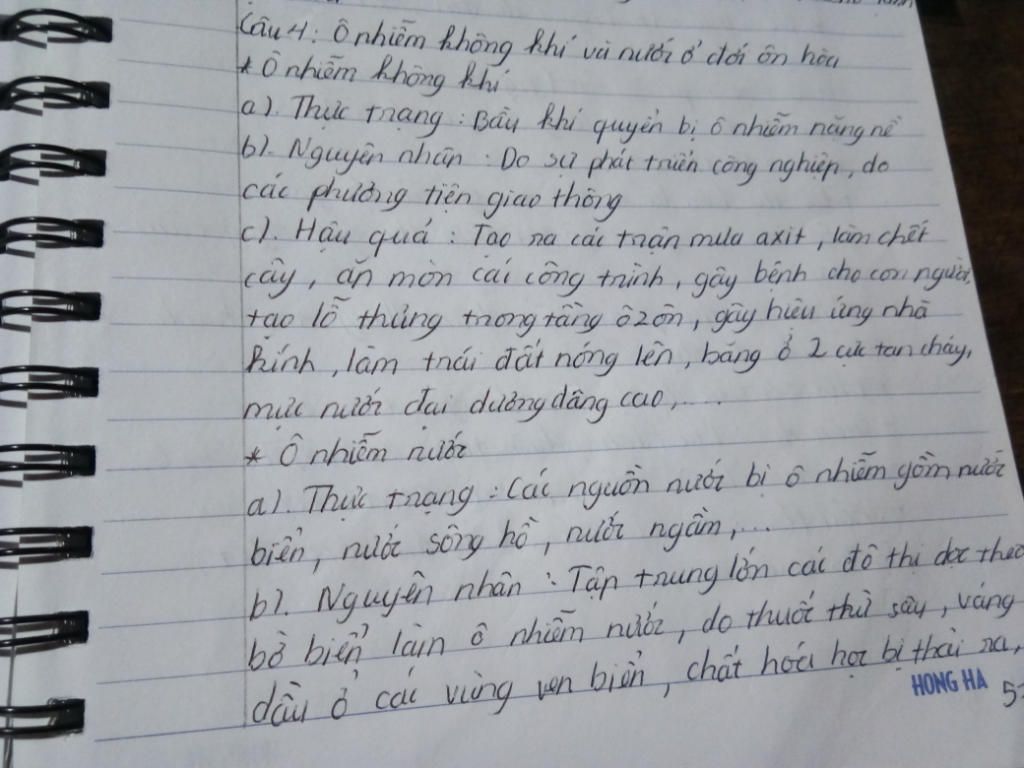 Câu 4: Ô nhiễm không khí và nước ở đới ôn hòa
* Ô nhiễm không khí
a). Thực trạng : Bầu khí quyển bị ô nhiễm nặng nề
b). Nguyên nhân : Do sự phát triển công nghiệp, do
các phương tiện giao thông
c). Hậu quả : Tạo ra các trận mưa axit, làm chết
cây, ăn mòn các công trình, gây bệnh cho con người,
tạo lỗ thủng trong tầng ôzôn, gây hiệu ứng nhà
kính, làm trái đất nóng lên, băng ở 2 cực tan chảy,
mực nước đại dương dâng cao,....
* Ô nhiễm nước
a). Thực trạng : Các nguồn nước bị ô nhiễm gồm nước
biển, nước sông hồ, nước ngầm,...
b). Nguyên nhân : Tập trung lớn các đô thị dọc theo
bờ biển làm ô nhiễm nước, do thuốc thừ sâu, váng
dầu ở các vùng ven biển, chất hóa học bị thải ra,
HONG HA